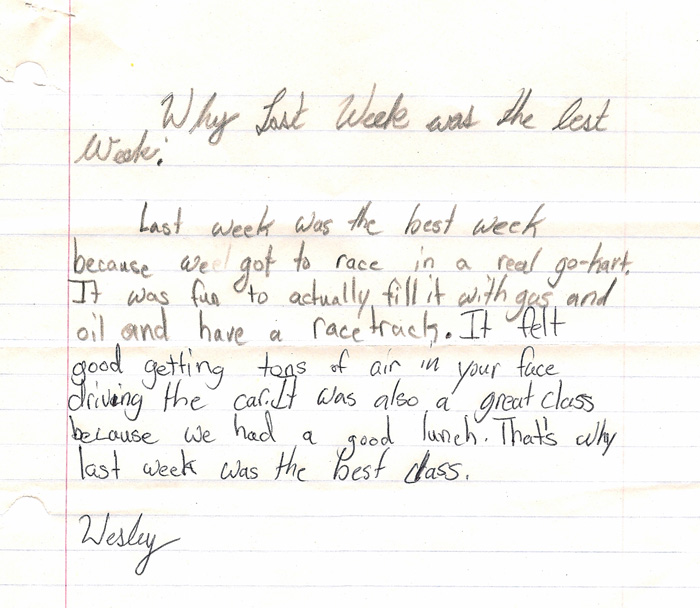 Why Last Week was the best
Week.
Last week was the best week
because we got to race in a real go-kart.
It was fun to actually fill it with gas and
oil and have a racetrack. It felt
good getting tons of air in your face
driving the car. It was also a great class
because we had a good lunch. That's why
last week was the best class.
Wesley